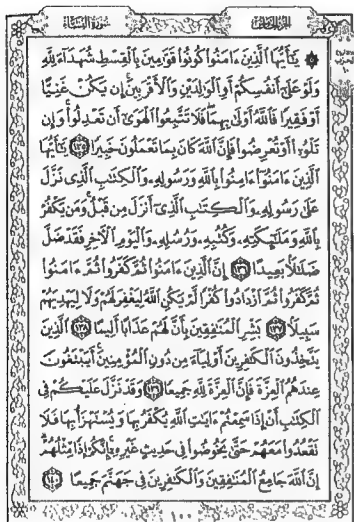 سُورَةُ النِّسَاءِ
۞ يَٰٓأَيُّهَا ٱلَّذِينَ ءَامَنُوا۟ كُونُوا۟ قَوَّٰمِينَ بِٱلْقِسْطِ شُهَدَآءَ لِلَّهِ
وَلَوْ عَلَىٰٓ أَنفُسِكُمْ أَوِ ٱلْوَٰلِدَيْنِ وَٱلْأَقْرَبِينَ إِن يَكُنْ غَنِيًّا
أَوْ فَقِيرًا فَٱللَّهُ أَوْلَىٰ بِهِمَا فَلَا تَتَّبِعُوا۟ ٱلْهَوَىٰٓ أَن تَعْدِلُوا۟ وَإِن
تَلْوُۥٓا۟ أَوْ تُعْرِضُوا۟ فَإِنَّ ٱللَّهَ كَانَ بِمَا تَعْمَلُونَ خَبِيرًا ١٣٥ يَٰٓأَيُّهَا
ٱلَّذِينَ ءَامَنُوٓا۟ ءَامِنُوا۟ بِٱللَّهِ وَرَسُولِهِۦ وَٱلْكِتَٰبِ ٱلَّذِى نَزَّلَ
عَلَىٰ رَسُولِهِۦ وَٱلْكِتَٰبِ ٱلَّذِىٓ أَنزَلَ مِن قَبْلُ وَمَن يَكْفُرْ
بِٱللَّهِ وَمَلَٰٓئِكَتِهِۦ وَكُتُبِهِۦ وَرُسُلِهِۦ وَٱلْيَوْمِ ٱلْءَاخِرِ فَقَدْ ضَلَّ
ضَلَٰلًۢا بَعِيدًا ١٣٦ إِنَّ ٱلَّذِينَ ءَامَنُوا۟ ثُمَّ كَفَرُوا۟ ثُمَّ ءَامَنُوا۟
ثُمَّ كَفَرُوا۟ ثُمَّ ٱزْدَادُوا۟ كُفْرًا لَّمْ يَكُنِ ٱللَّهُ لِيَغْفِرَ لَهُمْ وَلَا لِيَهْدِيَهُمْ
سَبِيلًۢا ١٣٧ بَشِّرِ ٱلْمُنَٰفِقِينَ بِأَنَّ لَهُمْ عَذَابًا أَلِيمًا ١٣٨ ٱلَّذِينَ
يَتَّخِذُونَ ٱلْكَٰفِرِينَ أَوْلِيَآءَ مِن دُونِ ٱلْمُؤْمِنِينَ أَيَبْتَغُونَ
عِندَهُمُ ٱلْعِزَّةَ فَإِنَّ ٱلْعِزَّةَ لِلَّهِ جَمِيعًا ١٣٩ وَقَدْ نَزَّلَ عَلَيْكُمْ فِى
ٱلْكِتَٰبِ أَنْ إِذَا سَمِعْتُمْ ءَايَٰتِ ٱللَّهِ يُكْفَرُ بِهَا وَيُسْتَهْزَأُ بِهَا فَلَا
تَقْعُدُوا۟ مَعَهُمْ حَتَّىٰ يَخُوضُوا۟ فِى حَدِيثٍ غَيْرِهِۦٓ إِنَّكُمْ إِذًا مِّثْلُهُمْ
إِنَّ ٱللَّهَ جَامِعُ ٱلْمُنَٰفِقِينَ وَٱلْكَٰفِرِينَ فِى جَهَنَّمَ جَمِيعًا ١٤٠
١٠٠